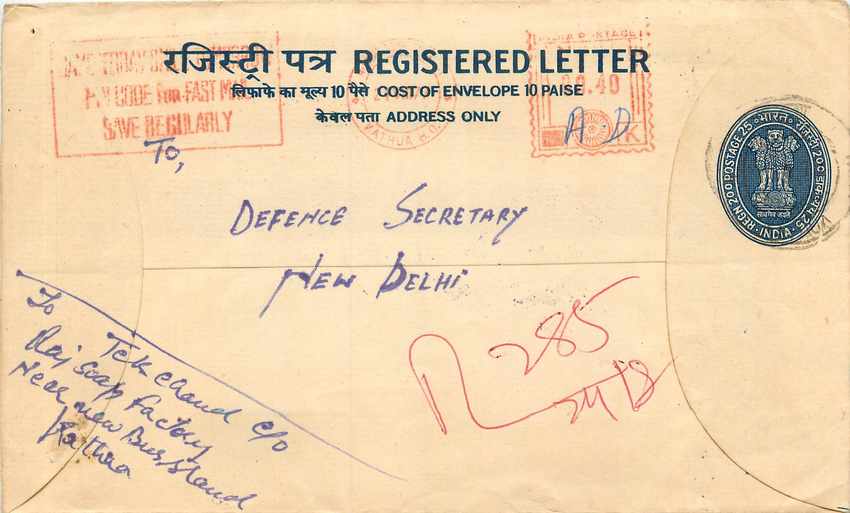 रजिस्ट्री पत्र REGISTERED LETTER
लिफाफे का मूल्य 10 पैसे COST OF ENVELOPE 10 PAISE
केवल पता ADDRESS ONLY
PIN CODE FOR FAST MAIL
SAVE REGULARLY
KATHUA H.O.
.40
A.D
REGN 200 POSTAGE 25 भारत रजिस्ट्री 200 डाक-व्यय 25
सत्यमेव जयते
INDIA
To,
DEFENCE SECRETARY
NEW DELHI
R 285
To
Tek Chand c/o
Raj soap factory
Near new Bus stand
Kathua